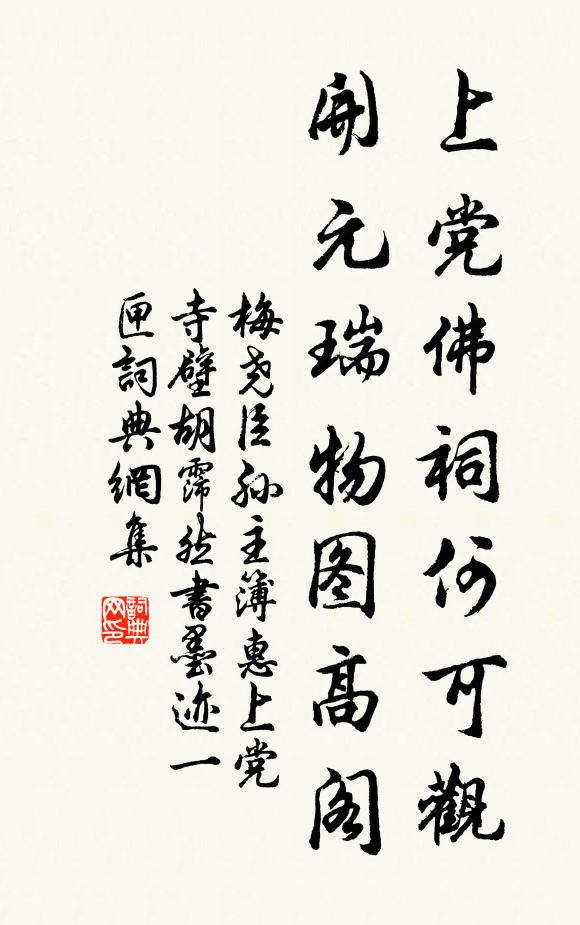 上党佛祠何可觀
開元瑞物图高阁
梅尧臣孙主簿惠上党
寺壁胡霈然書墨迹一
匣詞典網集
詞典网印